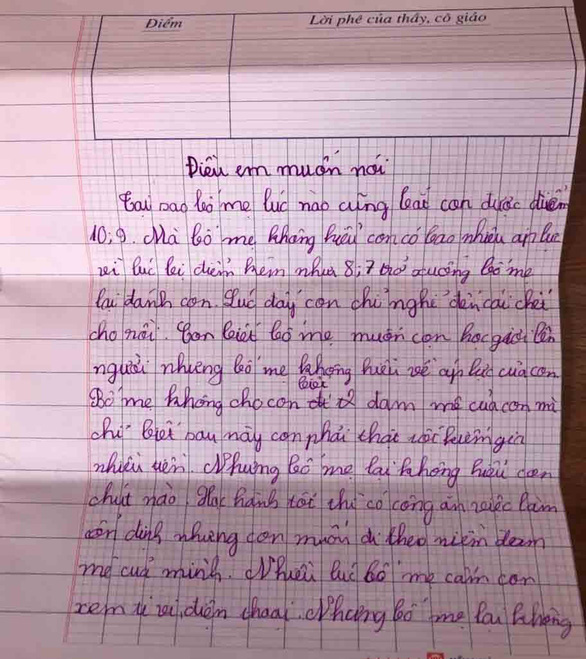 Điểm
Lời phê của thầy, cô giáo
Điều em muốn nói
Tại sao bố mẹ lúc nào cũng bắt con được điểm
10, 9. Mà bố mẹ không hiểu con có bao nhiêu áp lực
vì lúc bị điểm kém như 8, 7 trở xuống bố mẹ
lại đánh con. Lúc đấy con chỉ nghĩ đến cái chết
cho rồi. Con biết bố mẹ muốn con học giỏi lên
người nhưng bố mẹ không hiểu về áp lực của con.
Bố mẹ không cho con biết đam mê của con mì
chỉ biết sau này con phải thật kiếm
nhiều tiền. Nhưng bố mẹ lại không hiểu con
chút nào. Học hành tốt thì có công ăn việc làm
ổn định nhưng con muốn đi theo niềm đam
mê của mình. Nhiều lúc bố mẹ cấm con
xem ti vi, điện thoại. Nhưng bố mẹ lại không